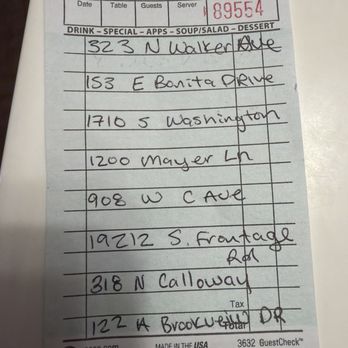 Date Table Guests Server 89554
DRINK – SPECIAL – APPS – SOUP/SALAD – DESSERT
323 N Walker Ave
153 E Bonita DRIVE
1710 S Washington
1200 Mayer Ln
908 W C Ave
19212 S. Frontage
Rd
318 N Calloway
Tax
122 A DR
Total
MADE IN THE USA 3632 GuestCheck™